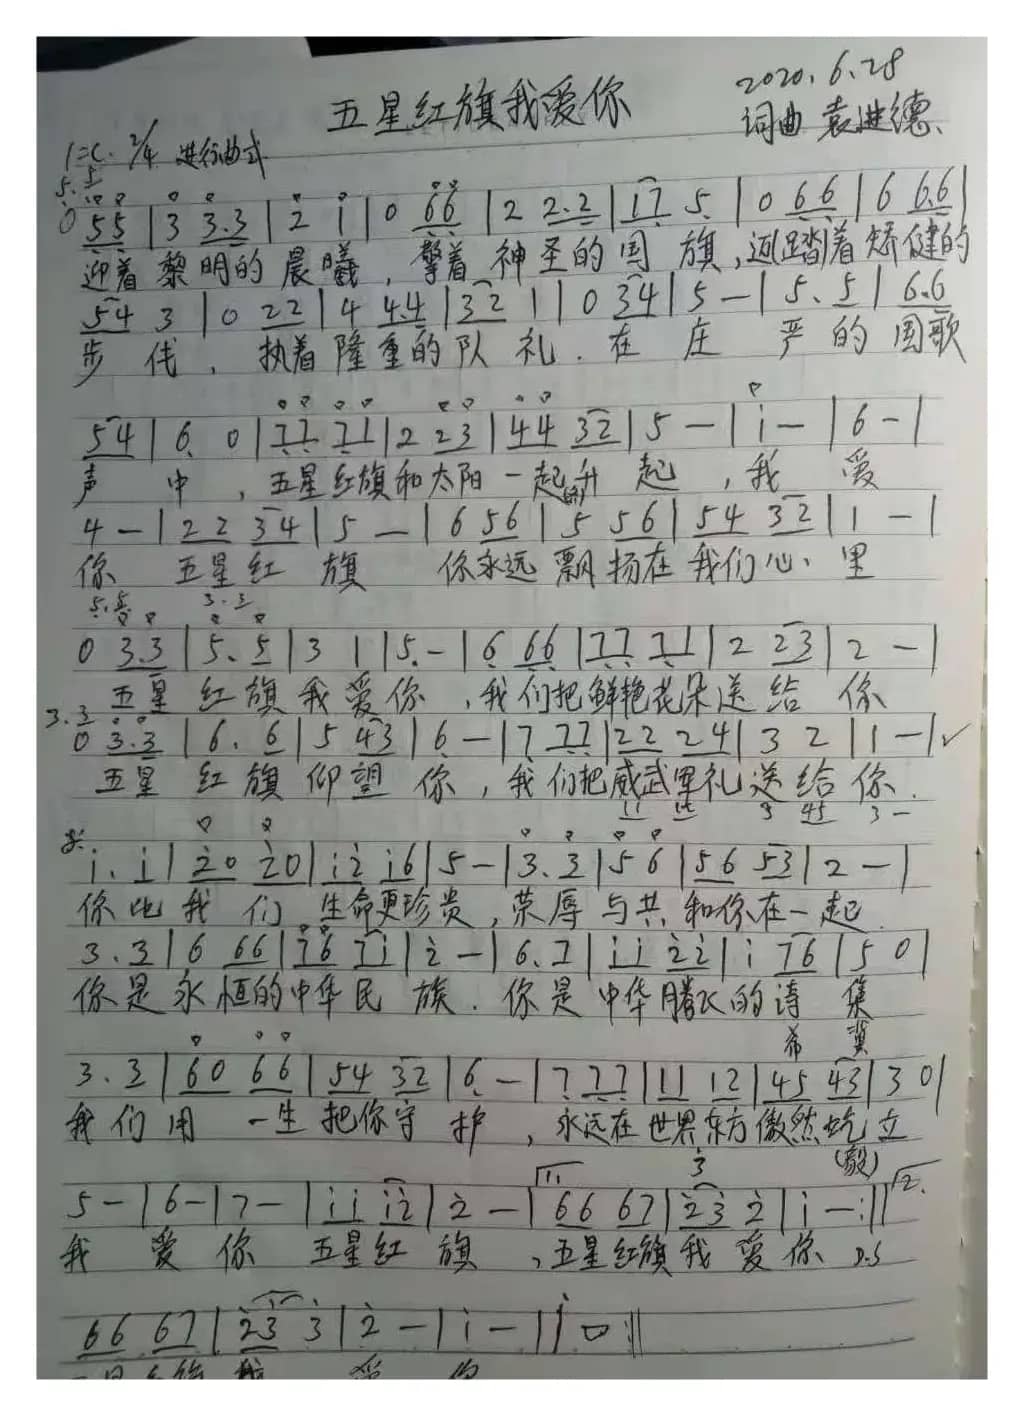 五星红旗我爱你
2020.6.28
词曲 袁进德
1=C 2/4 进行曲式
5. 5
0 55 | 3 3.3 | 2̇ 1̇ | 0 66 | 2 2.2 | 17 5 | 0 66 | 6 6.6 |
迎着黎明的晨曦,擎着神圣的国旗,迈踏着矫健的
54 3 | 0 22 | 4 4.4 | 32 1 | 0 34 | 5 — | 5. 5 | 6.6
步伐,执着隆重的队礼.在庄严的国歌
54 | 6 0 | 77 71 | 2 23 | 44 32 | 5 — | i — | 6 — |
声中,五星红旗和太阳一起升起,我爱
4 — | 22 34 | 5 — | 6 56 | 5 56 | 54 32 | 1 — |
你 五星红旗 你永远飘扬在我们心里
5.5 3.3
0 3.3 | 5. 5 | 3 1 | 5 — | 6 66 | 77 71 | 2 23 | 2 — |
五星红旗我爱你,我们把鲜艳花朵送给你
3.3
0 3.3 | 6. 6 | 5 43 | 6 — | 7 77 | 22 24 | 3 2 | 1 — |
五星红旗仰望你,我们把威武军礼送给你.
11 12 3 45 3 —
i. i | 2̇0 2̇0 | i2̇ i6 | 5 — | 3. 3 | 5 6 | 56 53 | 2 — |
你比我们生命更珍贵,荣辱与共和你在一起
3. 3 | 6 66 | 76 7i | 2̇ — | 6. 7 | ii 2̇2̇ | i 76 | 5 0 |
你是永恒的中华民族.你是中华腾飞的诗集
希冀
3. 3 | 60 66 | 54 32 | 6 — | 7 77 | 11 12 | 45 43 | 3 0 |
我们用一生把你守护,永远在世界东方傲然屹立
3̇ (毅)
5 — | 6 — | 7 — | ii i2̇ | 2̇ — | 1. 66 67 | 2̇3̇ 2̇ | i — :|| 2.
我爱你五星红旗,五星红旗我爱你 D.S
66 67 | 2̇3̇ 3̇ | 2̇ — | i — | i 0 ||